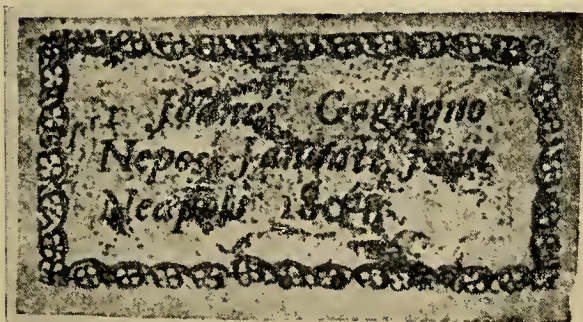 Joannes Gagliano
Nepos Januarii fecit
Neapoli 180